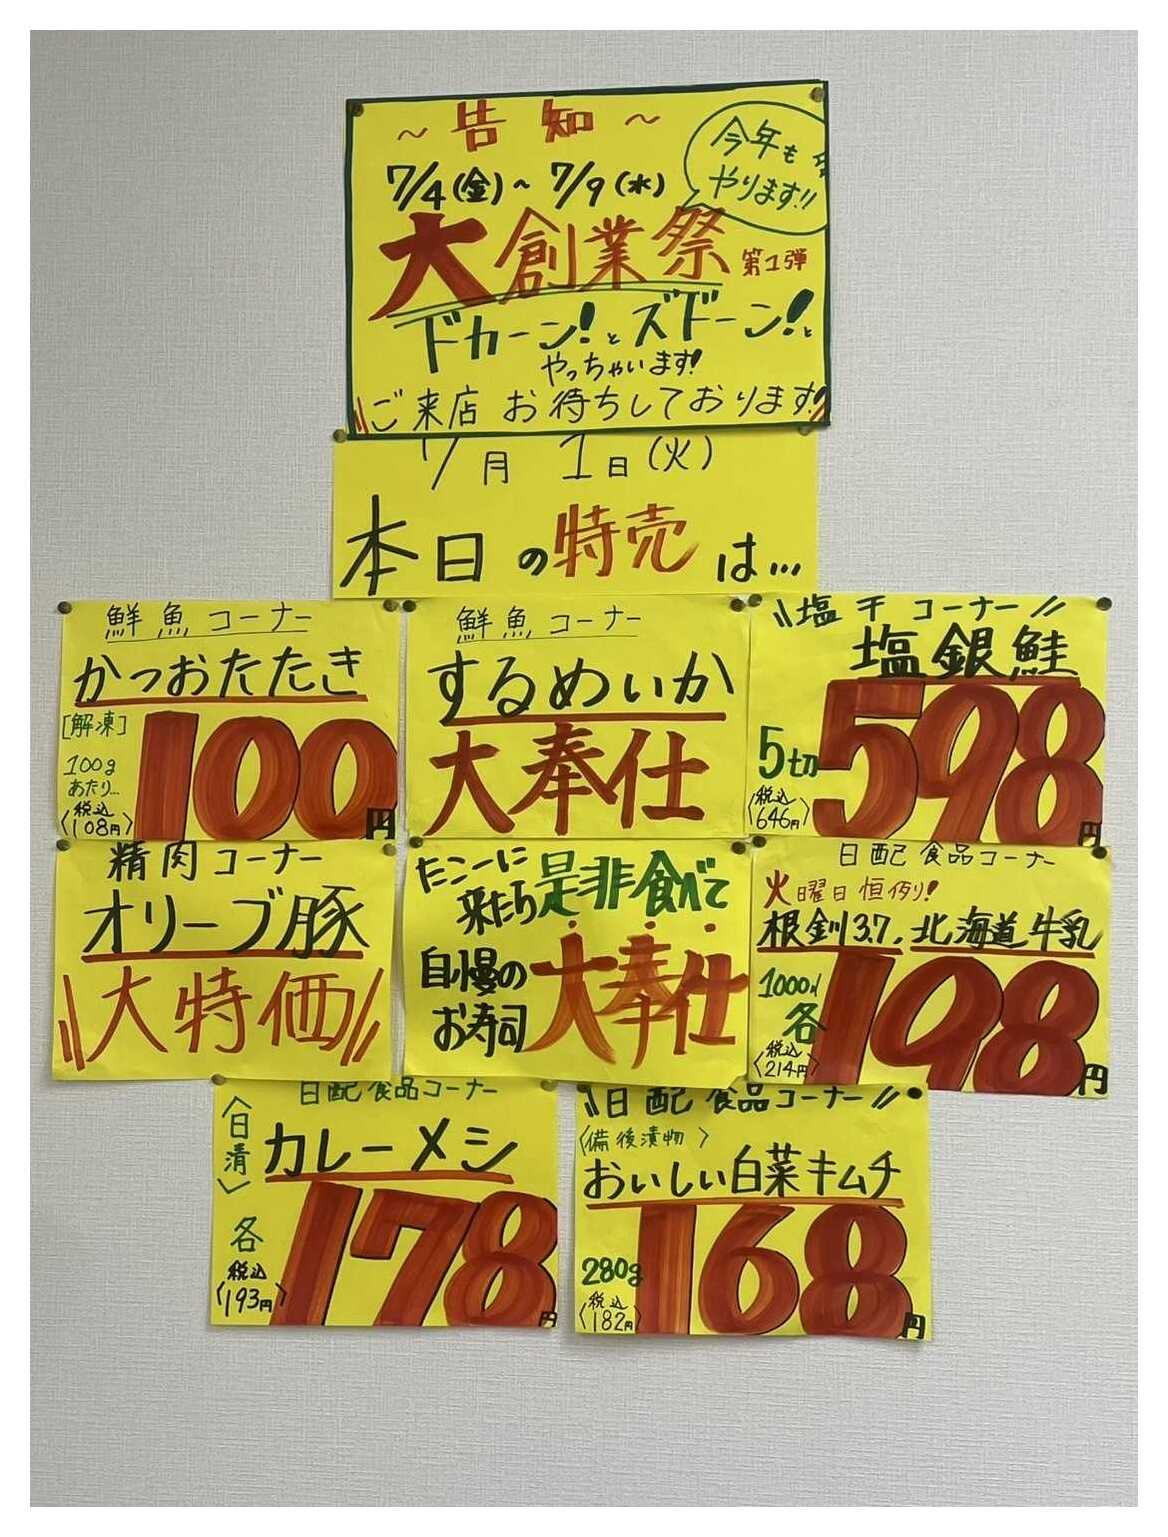 ～告知～
今年も
やります!!
7/4(金)～7/9(水)
大創業祭 第1弾
ドカーン!とズドーン!と
やっちゃいます!
ご来店お待ちしております!!
7月1日(火)
本日の特売は…
鮮魚コーナー
かつおたたき
[解凍]
100g
あたり…
〈税込
108円〉
100円
鮮魚コーナー
するめいか
大奉仕
\\塩干コーナー//
塩銀鮭
5切
〈税込
646円〉
598円
精肉コーナー
オリーブ豚
\\大特価//
たこーに
来たら是非食べて
自慢の
お寿司
大奉仕
日配食品コーナー
火曜日恒例り!
根釧3.7、北海道牛乳
1000ml
各
〈税込
214円〉
198円
日配食品コーナー
〈日清〉
カレーメシ
各
〈税込
193円〉
178円
\\日配食品コーナー//
〈備後漬物〉
おいしい白菜キムチ
280g
〈税込
182円〉
168円